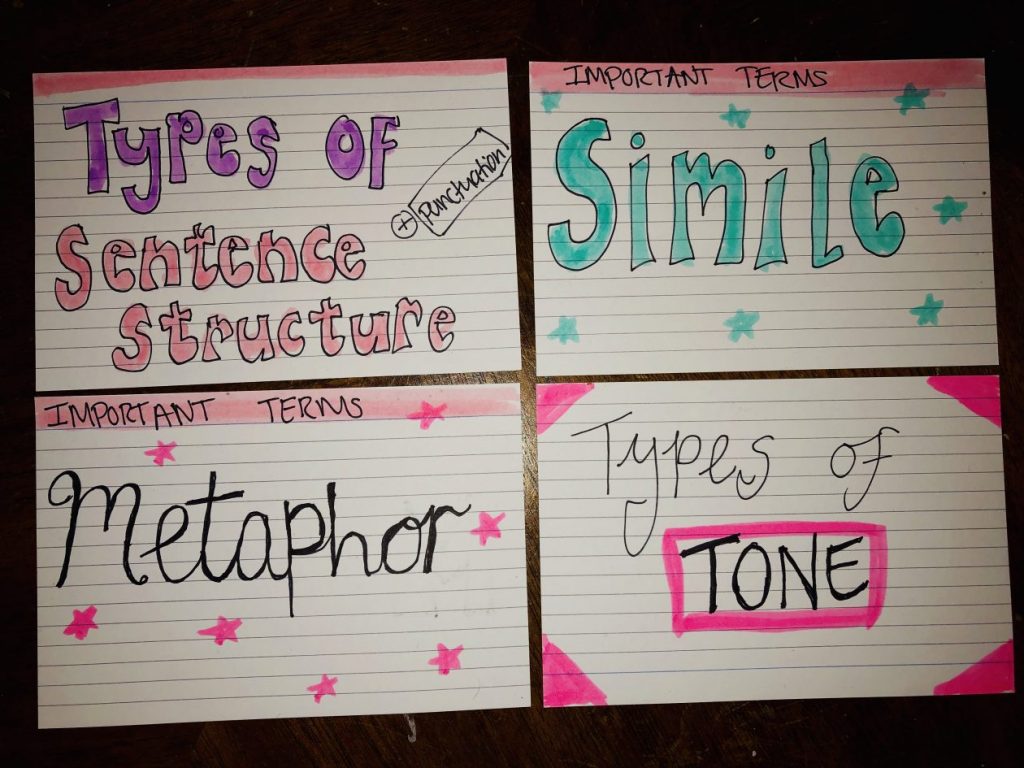 Types of
Sentence
Structure
+ Punctuation
IMPORTANT TERMS
Simile
IMPORTANT TERMS
Metaphor
Types of
TONE